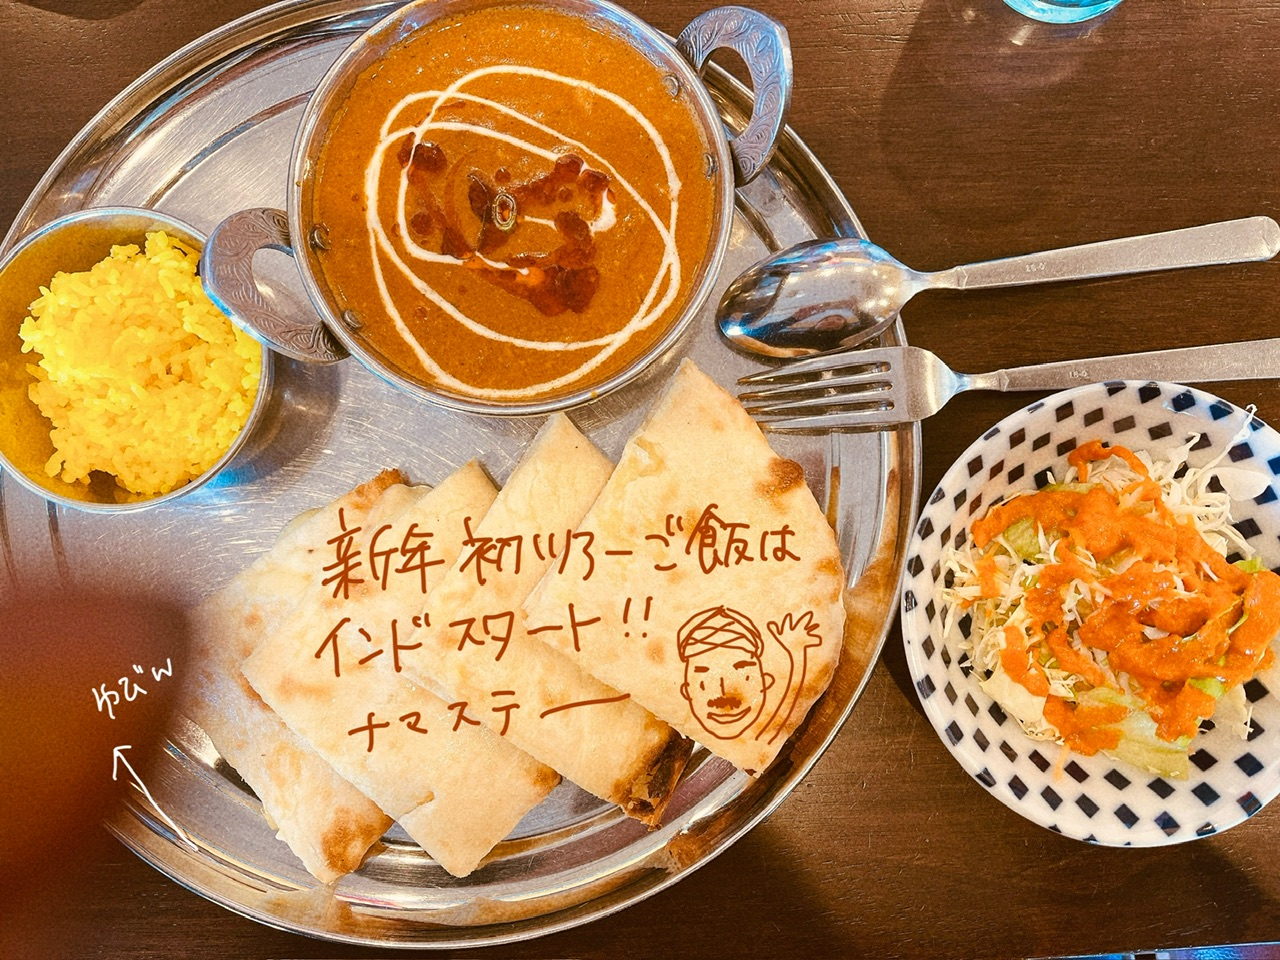 新年 初ツアーご飯は
インド スタート!!
ナマステー
ゆびw